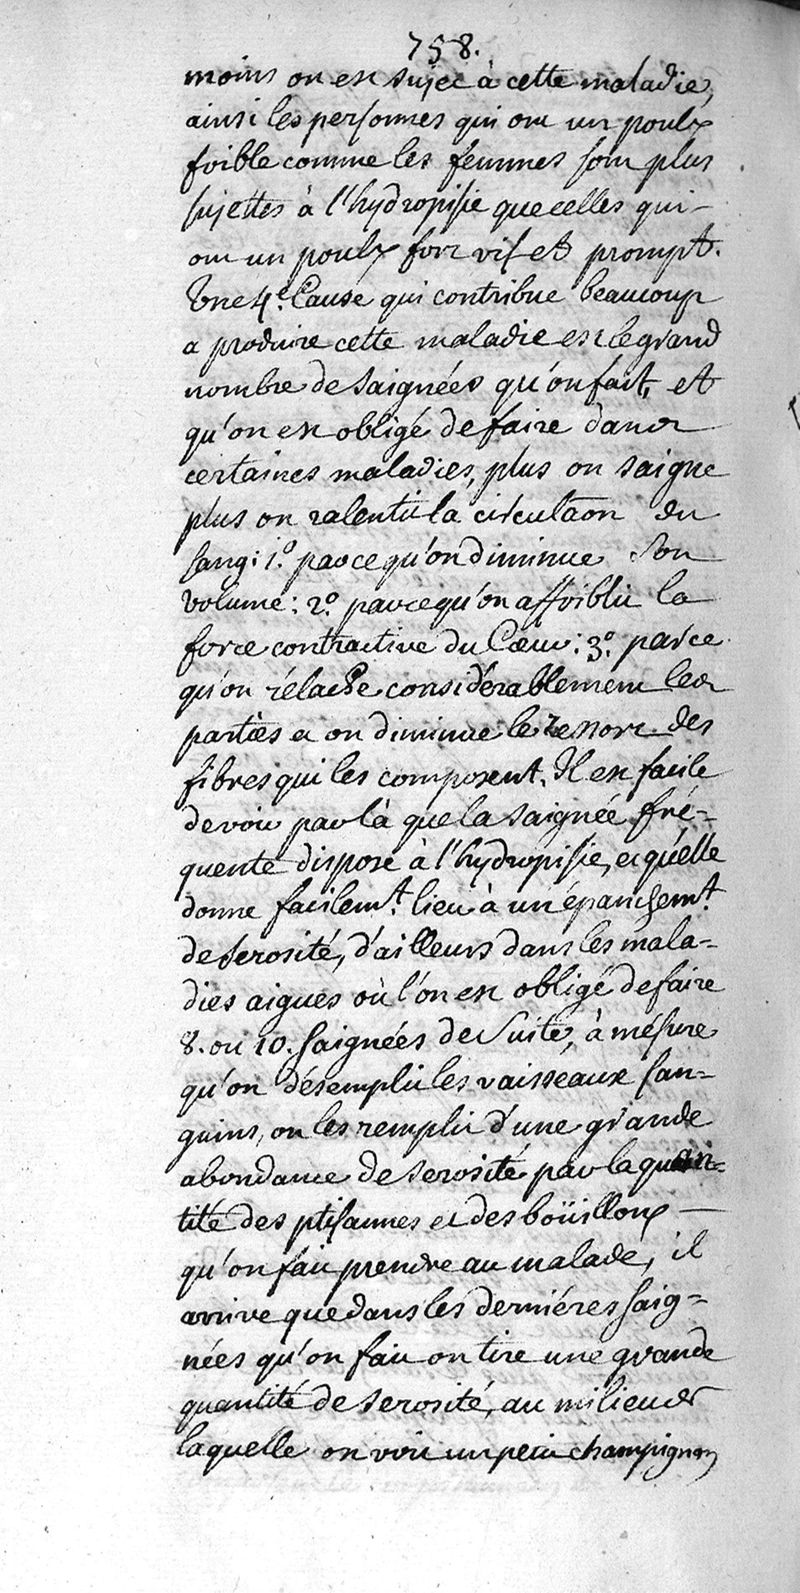 758.
moins on est sujet à cette maladie,
ainsi les personnes qui ont un poulx
foible comme les femmes sont plus
sujettes à l'hydropisie que celles qui-
ont un poulx fort vif et prompt.
Une 4.e Cause qui contribue beaucoup
a produire cette maladie est le grand
nombre de saignées qu'on fait, et
qu'on est obligé de faire dans
certaines maladies, plus on saigne
plus on ralentit la circulaon du
sang: 1.o parce qu'on diminue Son
volume: 2.o parce qu'on affoiblit la
force contractive du Cœur: 3.o parce
qu'on rélache considérablement les
parties et on diminue le ressort des
fibres qui les composent. Il est facile
de voir par là que la saignée fré-
quente dispose à l'hydropisie, et qu'elle
donne facilem.t lieu à un épanchem.t
de serosité, d'ailleurs dans les mala-
dies aigues où l'on est obligé de faire
8. ou 10. saignées de suite, à mésure
qu'on désemplit les vaisseaux san-
guins, on les remplit d'une grande
abondance de serosité par la quan-
tité des ptisannes et des boüillons —
qu'on fait prendre au malade, il
arrive que dans les derniéres saig-
nées qu'on fait on tire une grande
quantité de serosité, au milieu de
laquelle on voit un petit champignon